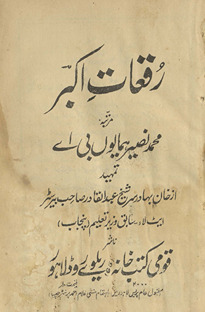 رقعاتِ اکبر
مرتبہ
محمد نصیر ہمایوں بی اے
تمہید
از خان بہادر سر شیخ عبدالقادر صاحب بیرسٹر
ایٹ لا، سابق وزیر تعلیم (پنجاب)
ناشر
قومی کتب خانہ ریلوے روڈ لاہور